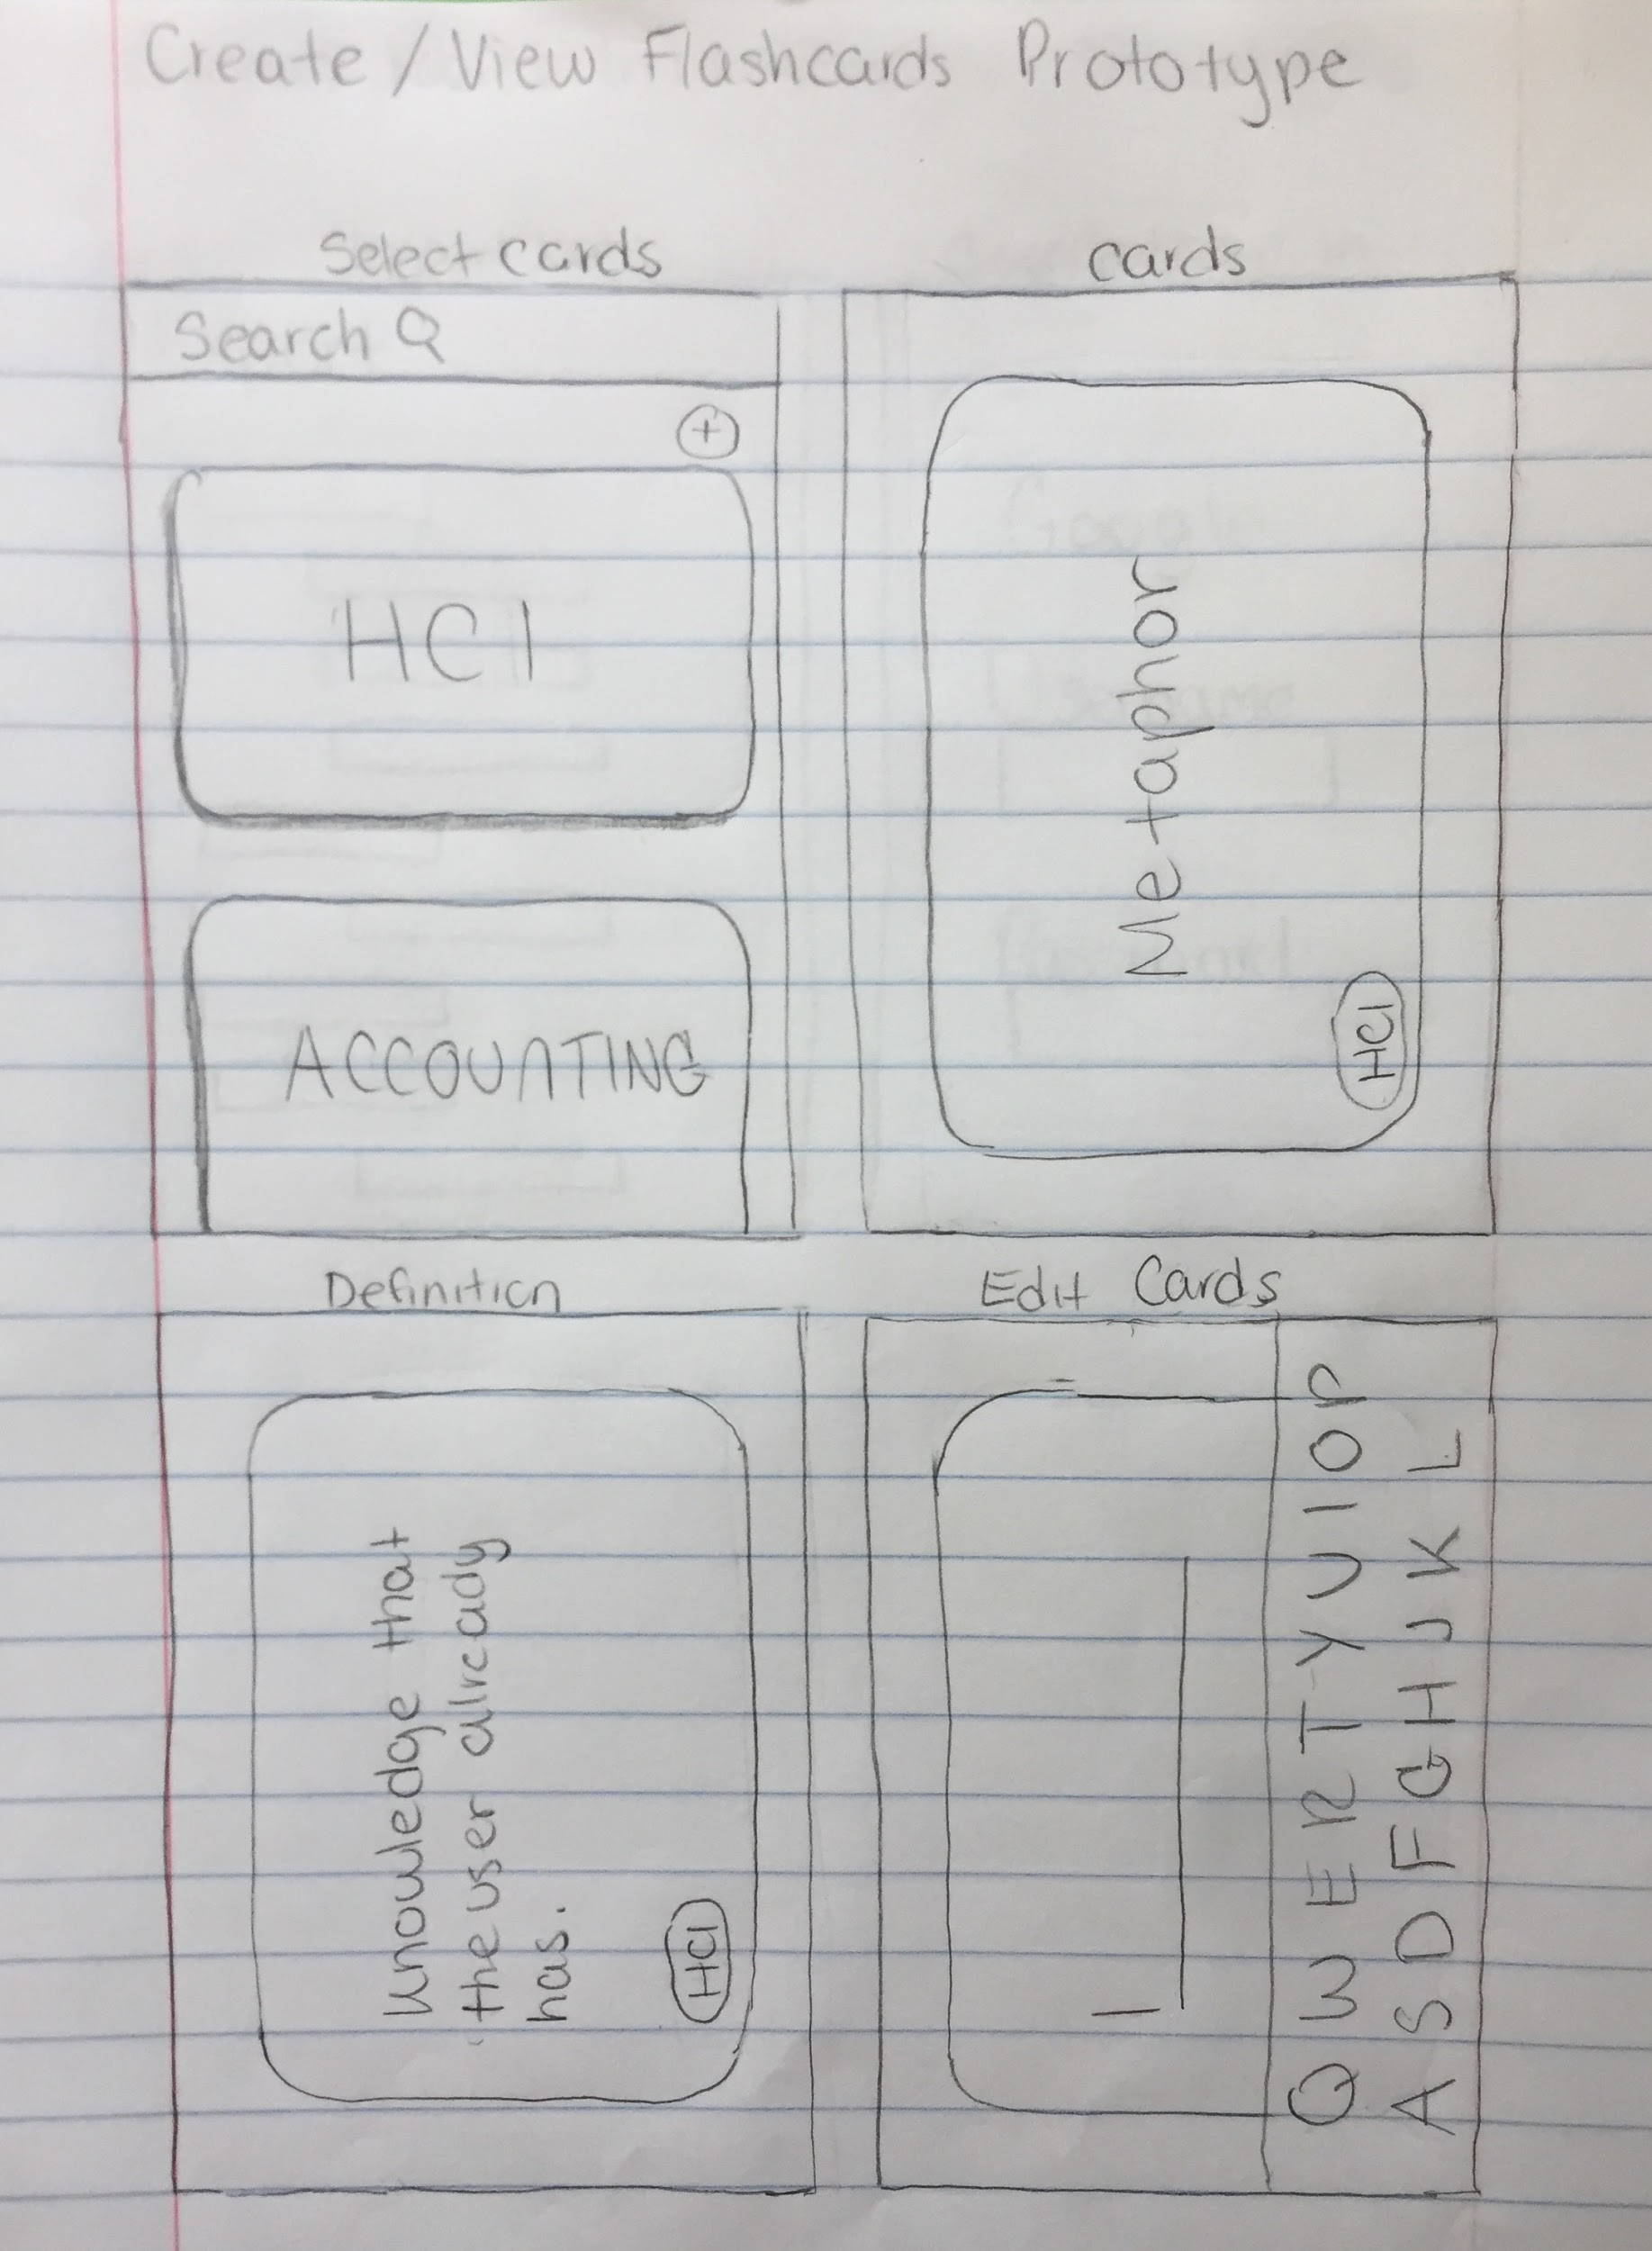 Create / View Flashcards Prototype
Select cards
Search
+
HCI
ACCOUNTING
cards
Metaphor
HCI
Definition
Knowledge that
the user already
has.
HCI
Edit Cards
Q W E R T Y U I O P
A S D F G H J K L